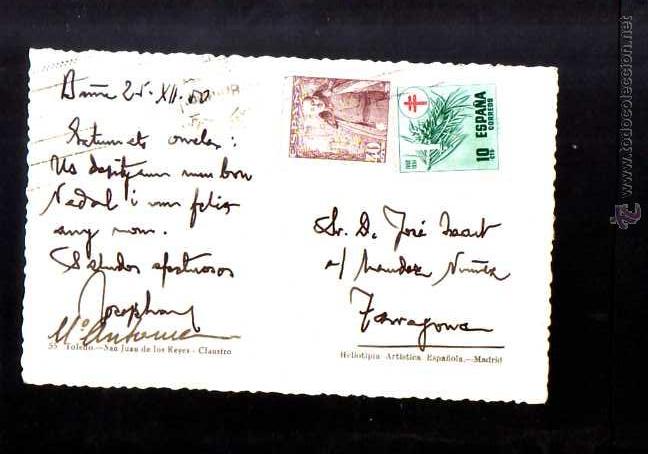 25-XII-50
Estimats oncles:
Us desitjem un bon
Nadal i un feliç
any nou.
Saludos afectuosos
Mª Antonia
55 Toledo.—San Juan de los Reyes - Claustro
ESPAÑA
CORREOS
10 CTS
Sr. D. José
c/ Mendez Nuñez
Tarragona
Heliotipia Artística Española.—Madrid
www.todocoleccion.net